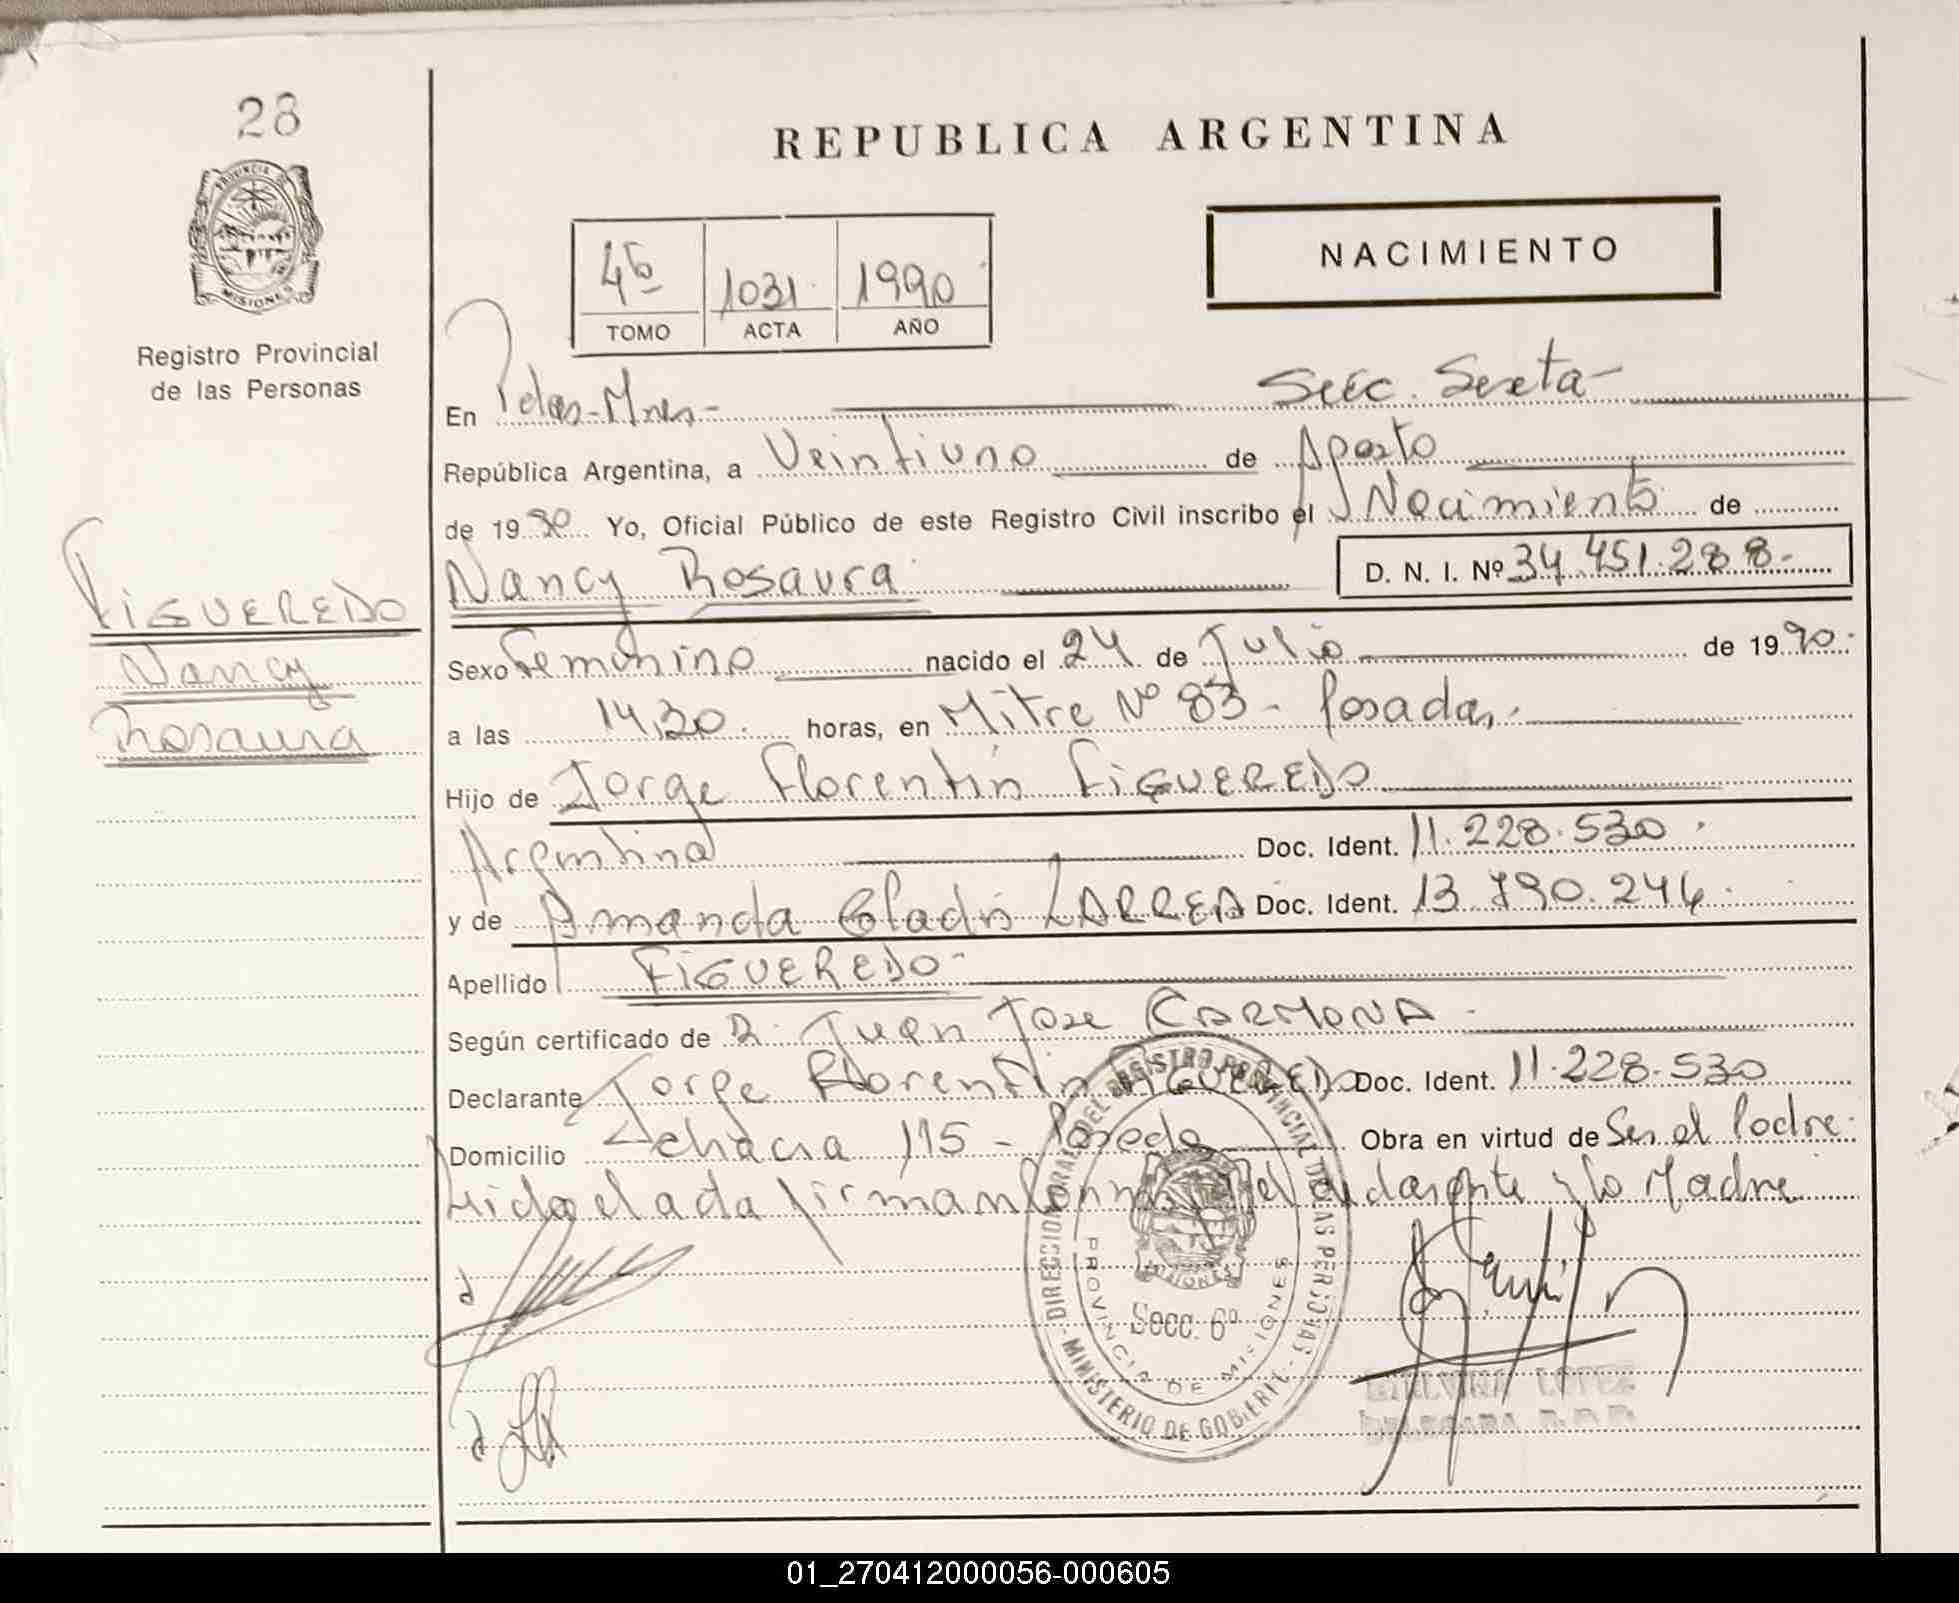 28
REPUBLICA ARGENTINA
PROVINCIA DE
MISIONES
Registro Provincial
de las Personas
NACIMIENTO
4to 1031 1990
TOMO ACTA AÑO
En Pdas-Mnes- Secc. Sexta-
República Argentina, a Veintiuno de Agosto
de 1990 Yo, Oficial Público de este Registro Civil inscribo el Nacimiento de
Nancy Rosaura D. N. I. Nº 34.451.288-
FIGUEREDO
Nancy
Rosaura
Sexo Femenino nacido el 24 de Julio de 1990.
a las 14,30. horas, en Mitre Nº 83 - Posadas.
Hijo de Jorge Florentín FIGUEREDO
Argentino Doc. Ident. 11.228.530.
y de Amanda Gladis LARREA Doc. Ident. 13.790.244.
Apellido FIGUEREDO-
Según certificado de Dr. Juan Jose CARMONA.
Declarante Jorge Florentín FIGUEREDO Doc. Ident. 11.228.530
Domicilio 115 - Posadas Obra en virtud de Ser el Padre.
Leida el acta firman y la Madre
DIRECCION GRAL. DEL REGISTRO PROVINCIAL DE LAS PERSONAS - MINISTERIO DE GOBIERNO -
PROVINCIA DE MISIONES
MISIONES
Secc. 6º
LOPEZ
DELEGADA R.P.P.
01_270412000056-000605